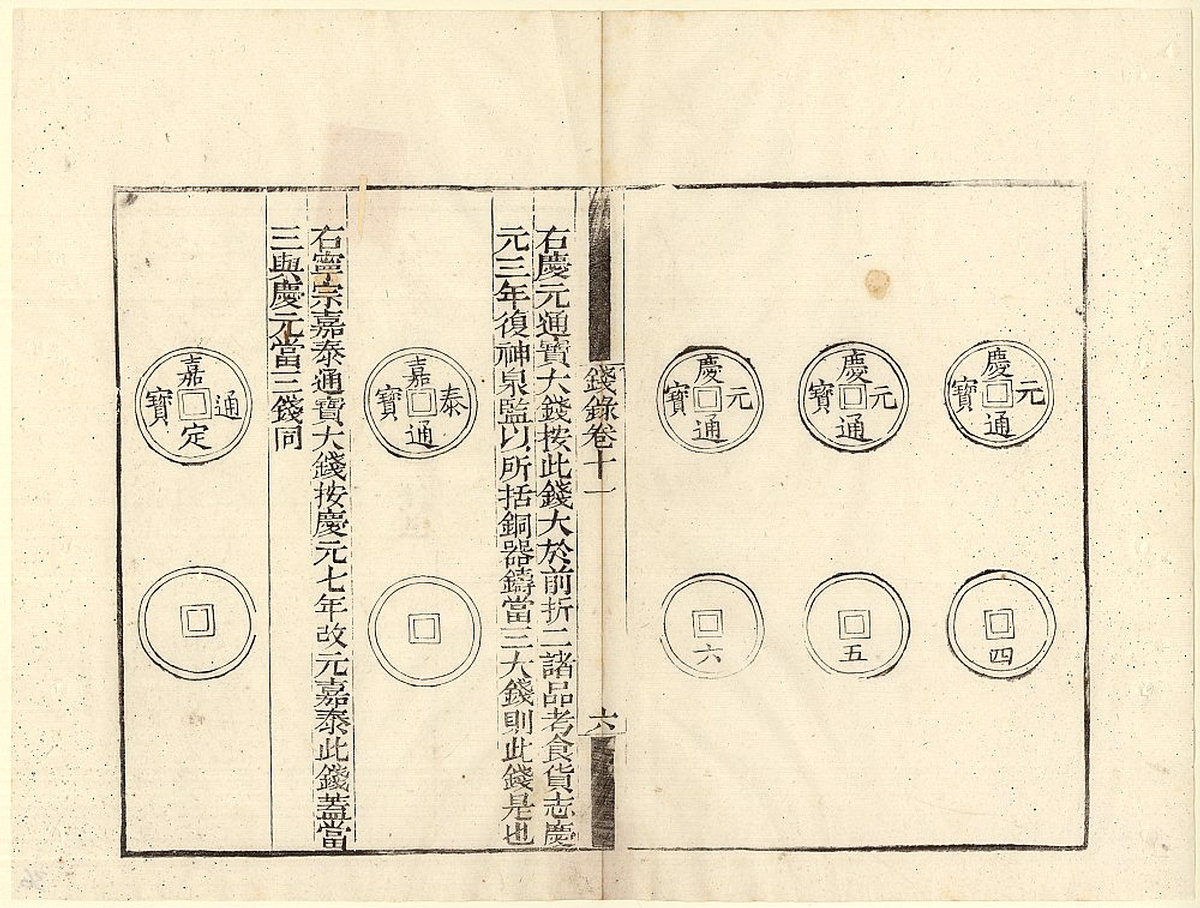 慶元通寶
四
慶元通寶
五
慶元通寶
六
錢錄卷十一
六
右慶元通寶大錢按此錢大於前折二諸品考食貨志慶
元三年復神泉監以所括銅器鑄當三大錢則此錢是也
嘉泰通寶
右寧宗嘉泰通寶大錢按慶元七年改元嘉泰此錢蓋當
三與慶元當三錢同
嘉定通寶